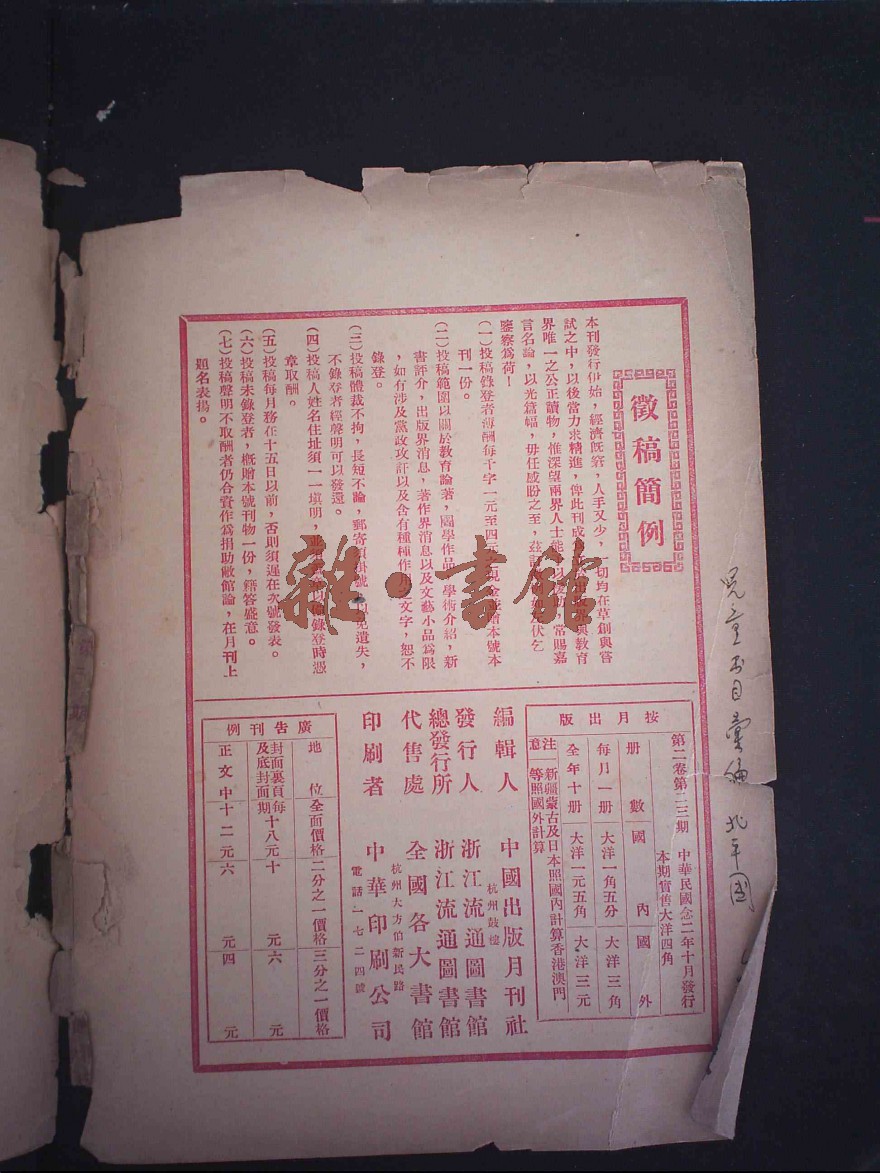 徵稿簡例
本刊發行伊始，經濟旣窘，人手又少，一切均在草創與嘗
試之中，以後當力求精進，俾此刊成 與教育
界唯一之公正讀物，惟深望兩界人士能 常賜嘉
言名論，以光篇幅，毋任感盼之至，茲 伏乞
鑒察爲荷！
（一）投稿錄登者薄酬每千字一元至四 現金 贈本號本
刊一份。
（二）投稿範圍以關於教育論著，圖學作品 學術介紹，新
書評介，出版界消息，著作界消息以及文藝小品爲限
，如有涉及黨政攻訐以及含有種種作用 文字，恕不
錄登。
（三）投稿體裁不拘，長短不論，郵寄須掛號 免遺失，
不錄登者經聲明可以發還。
（四）投稿人姓名住址須一一塡明，並 錄登時憑
章取酬。
（五）投稿每月務在十五日以前，否則須遲在次號發表。
（六）投稿未錄登者，概贈本號刊物一份，藉答盛意。
（七）投稿聲明不取酬者仍合資作爲捐助敝館論，在月刊上
題名表揚。
雜·書館
按月出版
第二卷第二三期 中華民國念二年十月發行
本期實售大洋四角
册數 國內 國外
每月一册 大洋一角五分 大洋三角
全年十册 大洋一元五角 大洋三元
注意 新疆蒙古及日本照國內計算香港澳門
等照國外計算
編輯人 中國出版月刊社
杭州鼓樓
發行人 浙江流通圖書館
總發行所 浙江流通圖書館
代售處 全國各大書館
杭州大方伯新民路
印刷者 中華印刷公司
電話一七二四號
廣告刊例
地位 全面價格 二分之一價格 三分之一價格
封面裏頁每
及底封面期 十八元 十元 六元
正文中 十二元 六元 四元
兒童書目彙編 北平國